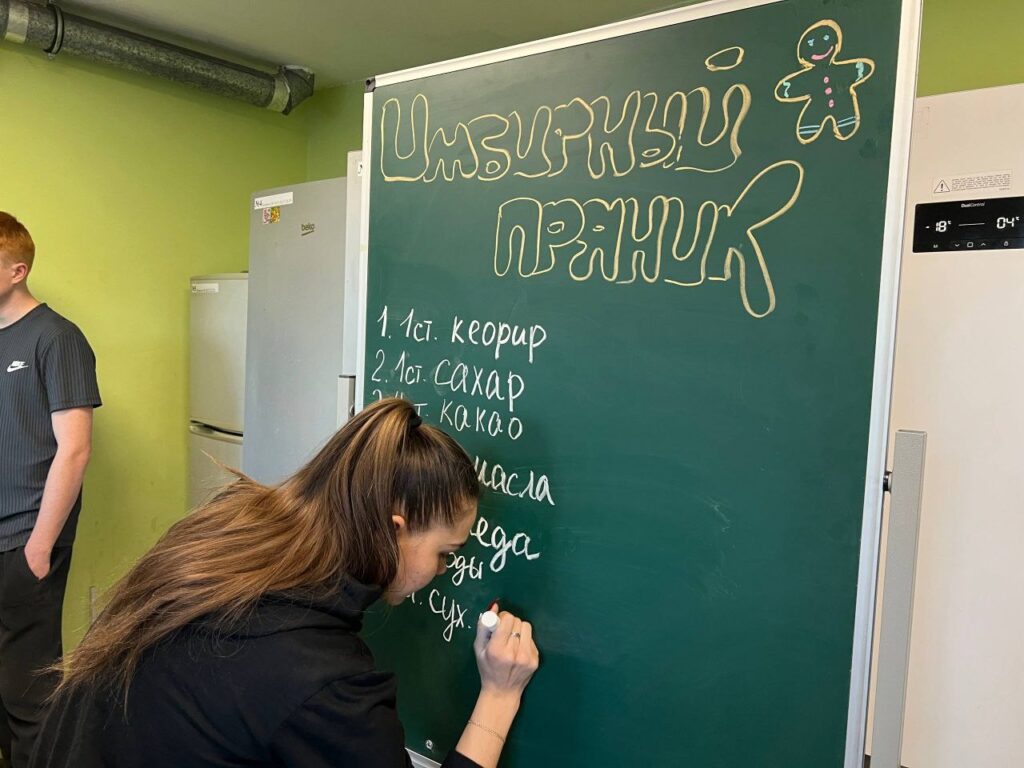 Имбирный
пряник
1. 1ст. кеорир
2. 1ст. сахар
какао
масла
еда
оды
сух.
beko
DualControl
-18° 04°